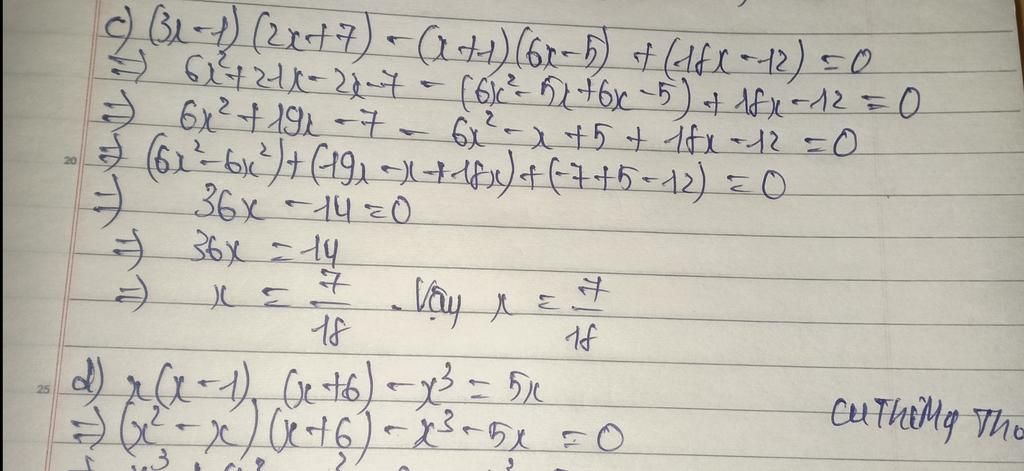 c) (3x-1)(2x+7) - (x+1)(6x-5) + (18x-12) = 0
=> 6x²+21x-2x-7 - (6x²-5x+6x-5) + 18x-12 = 0
=> 6x²+19x-7 - 6x²-x+5 + 18x-12 = 0
20 => (6x²-6x²)+(19x-x+18x)+(-7+5-12) = 0
=> 36x-14=0
=> 36x = 14
=> x = 7/18 . Vậy x = 7/18
25 d) x(x-1)(x+6) - x³ = 5x
CuThiMg Tho
=> (x²-x)(x+6) - x³-5x = 0